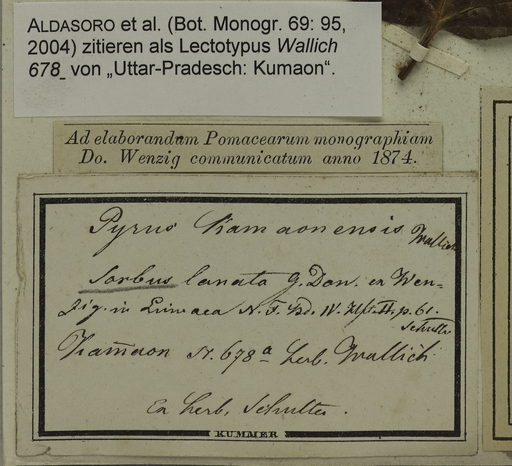 ALDASORO et al. (Bot. Monogr. 69: 95,
2004) zitieren als Lectotypus Wallich
678 von „Uttar-Pradesch: Kumaon“.
Ad elaborandum Pomacearum monographiam
Do. Wenzig communicatum anno 1874.
Pyrus Kamaonensis Wallich
Sorbus lanata G. Don. ex Wen=
zig. in Linnaea N. F. Bd. IV. Hft. II. p. 61.
Schultes
Kamaon N. 678a herb. Wallich
Ex herb. Schultes.
KUMMER